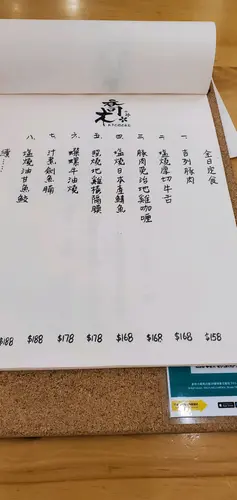 全日定食
一、吉列豚肉 $158
二、塩燒厚切牛舌 $168
三、豚肉免治地雞咖喱 $168
四、塩燒日本產鯖魚 $168
五、照燒地雞橫隔膜 $178
六、蠑螺牛油燒 $178
七、汁煮劍魚腩 $188
八、塩燒油甘魚鮫 $188
續……